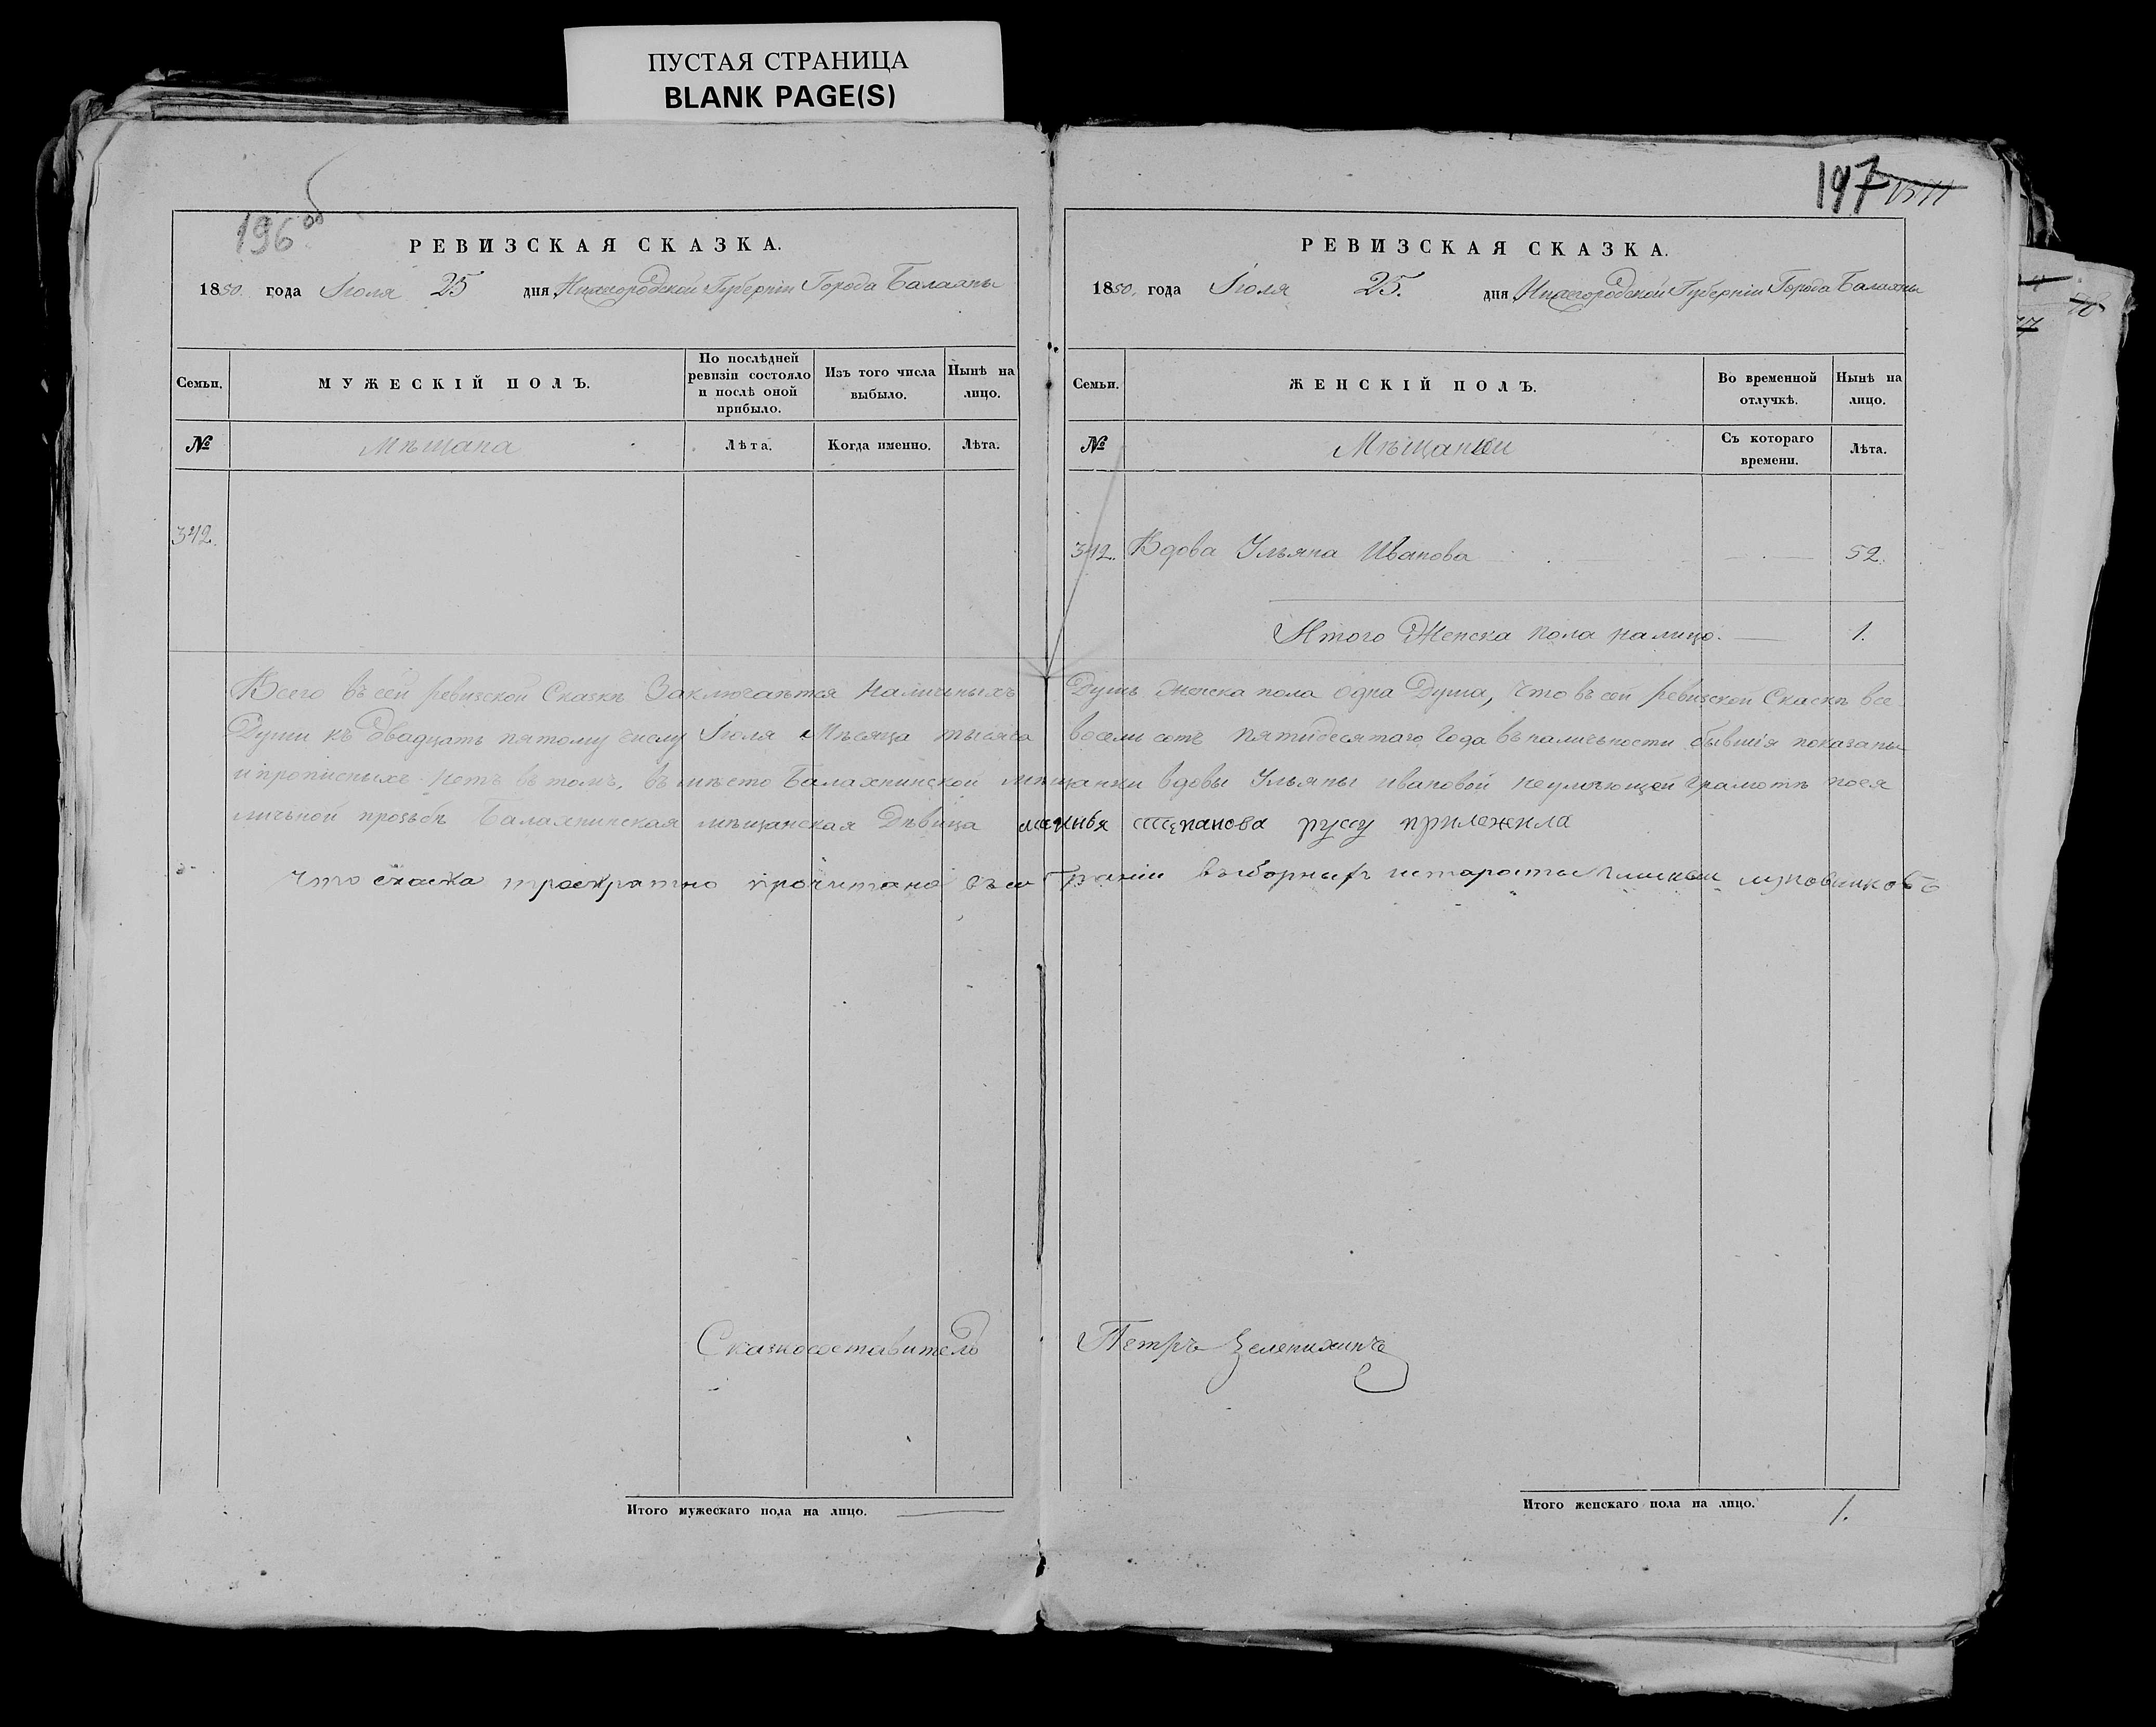 ПУСТАЯ СТРАНИЦА
BLANK PAGE(S)
196 об
РЕВИЗСКАЯ СКАЗКА.
1850. года Іюля 25 дня Нижегородской Губерніи Города Балахны
Семьи.
МУЖЕСКІЙ ПОЛЪ.
По послѣдней ревизіи состояло и послѣ оной прибыло.
Изъ того числа выбыло.
Нынѣ на лицо.
№
Мѣщана
Лѣта.
Когда именно.
Лѣта.
342.
197
РЕВИЗСКАЯ СКАЗКА.
1850. года Іюля 25. дня Нижегородской Губерніи Города Балахны
Семьи.
ЖЕНСКІЙ ПОЛЪ.
Во временной отлучкѣ.
Нынѣ на лицо.
№
Мѣщанки
Съ котораго времени.
Лѣта.
342. Вдова Ульяна Иванова 52.
Итого Женска пола налицо. 1.
Всего въ сей ревизской Сказкѣ Заключается Наличныхъ Душъ женска пола одна Душа, Что въ сей ревизской Скаскѣ все
Души къ двадцать пятому числу Іюля Мѣсяца тысяча восемь сотъ пятидесятаго Года въ наличности бывшія показаны
и прописныхъ нетъ въ томъ, въ мѣсто Балахнинской мѣщанки вдовы Ульяны ивановой неумеющей грамотѣ поея
личной прозьбѣ Балахнинская мещанская Дѣвица Степанова руку приложила
Что скаска троекратно прочитана въ собраніи выборныхъ староста
Сказкосоставитель Петръ Зеленихинъ
Итого мужескаго пола на лицо.
Итого женскаго пола на лицо. 1.